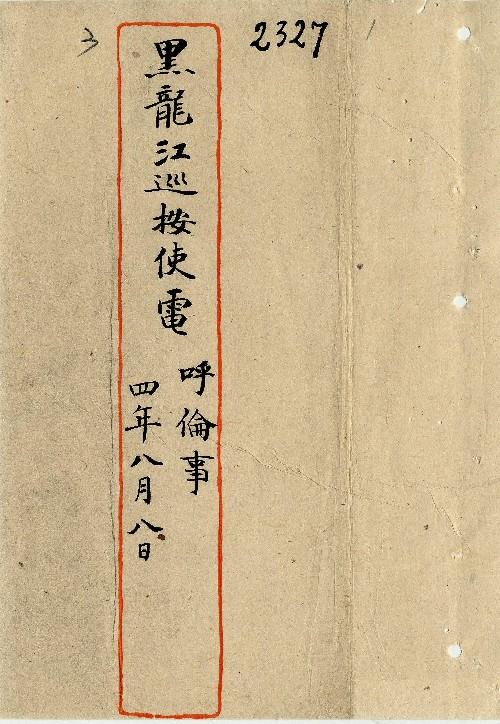 2327
3
黑龍江巡按使電
呼倫事
四年八月八日